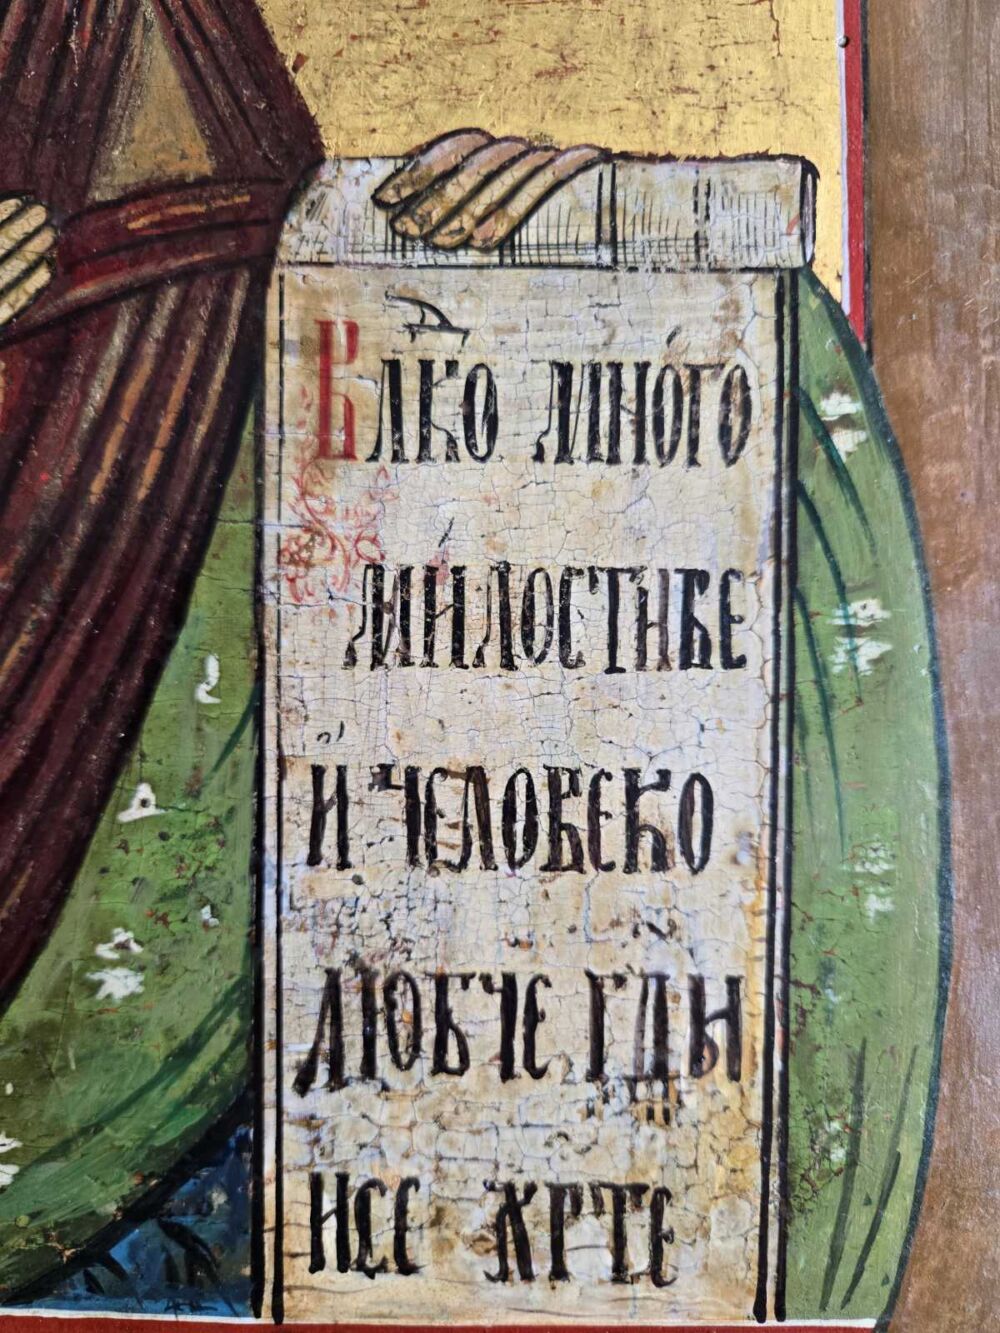 Влⷣко мно́го
ми́лостиве
и҆ человеко
любче гдⷭ҇и
ИСЕ ХРТЕ